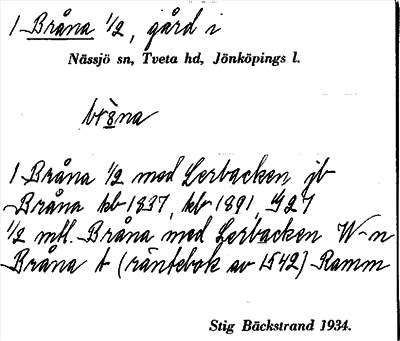 1 Bråna 1/2, gård i
Nässjö sn, Tveta hd, Jönköpings l.
brå̀na
1 Bråna 1/2 med Lerbacken jb
Bråna kb 1837, kb 1891, G 27
1/2 mtl. Bråna med Lerbacken W-n
Bråna t (räntebok av 1542) Ramm
Stig Bäckstrand 1934.